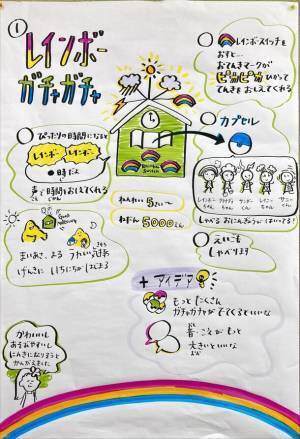 ①
レインボー
ガチャガチャ
レインボースイッチを
おすと…
おてんきマークが
ピカピカひかって
てんきをおしえてくれる
ぴったりの時間になると
レインボー レインボー
●時だよ
声で時間をおしえてくれる
カプセル
RAINBOW SWITCH
レインボーちゃん
サンダーくん
レイニーちゃん
サニーくん
しゃべるおにんぎょうがはいってる！
ねんれい 5さい〜
ねだん 5000えん
えいごも
しゃべります
Good morning
まいあさ、よる
げんきに いちにちが はじまる
+ アイデア
もっとたくさん
ガチャガチャがでてくるといいな
音・こえがもっと
大きいといいな
かわいいし
あそびやすいし
にんきになりそうと
かんがえました